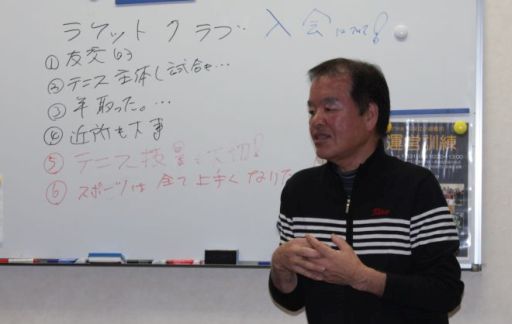 ラケットクラブ 入会
① 友交
② テニス主体し試合も…
③ 年取った。…
④ 近所も大事
⑤ テニス技量も大切!
⑥ スポーツは全て上手くなりた
運営訓練